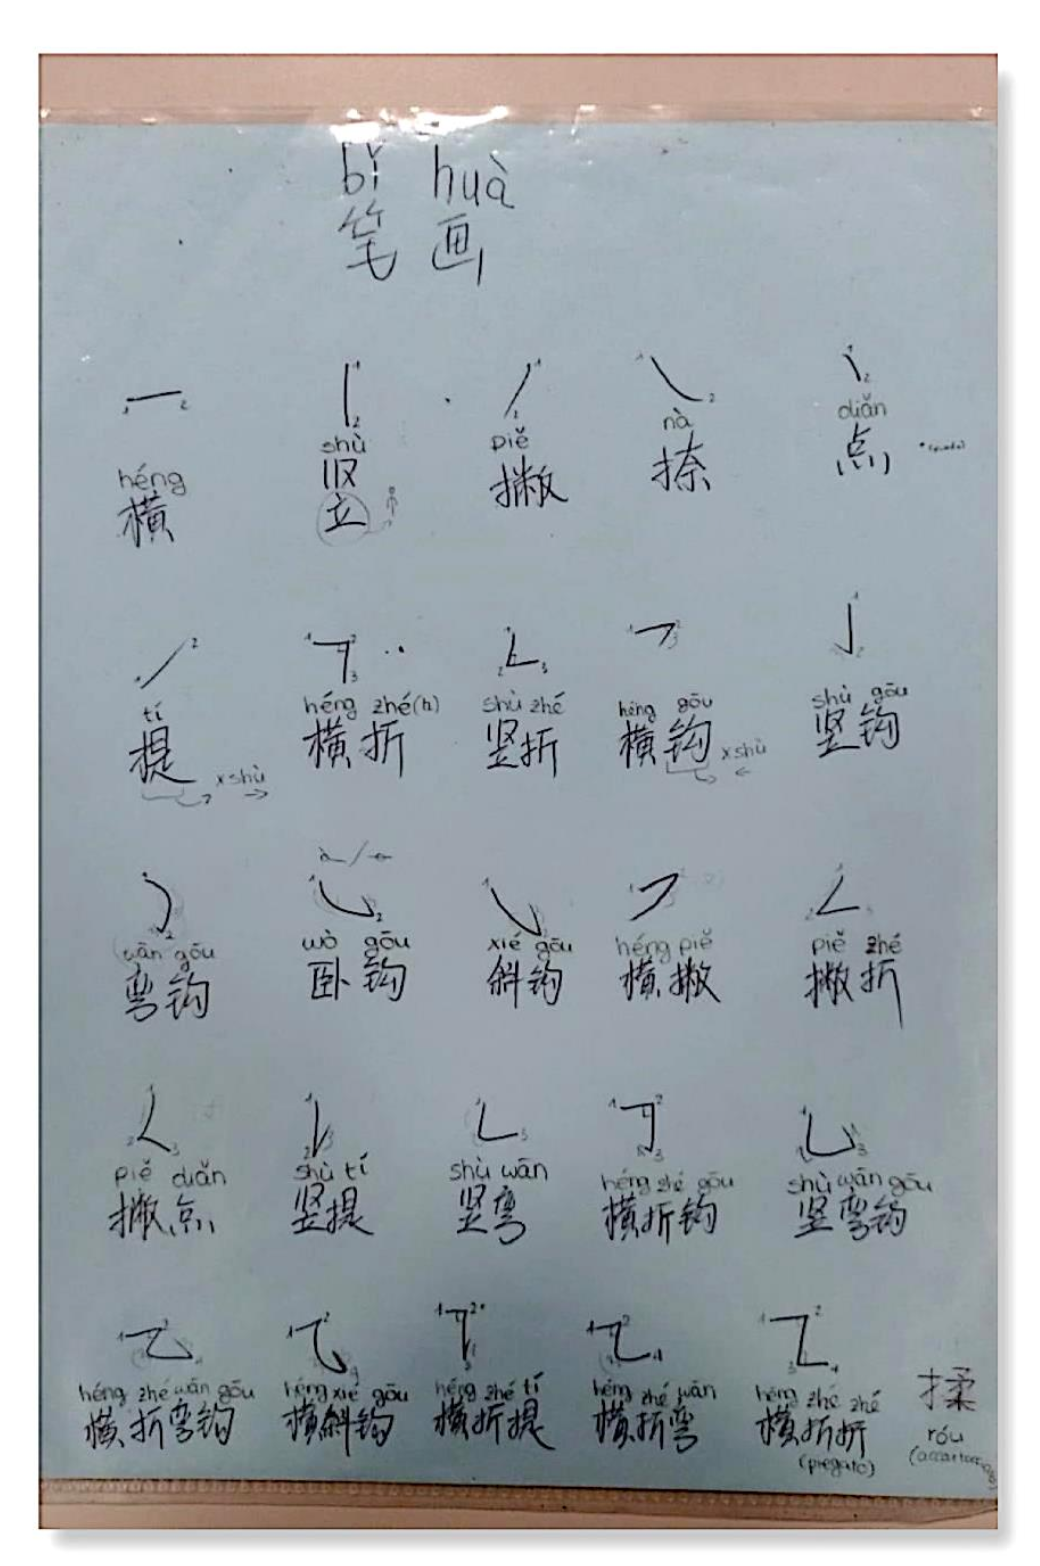 bǐ huà
笔 画
1 2 1 2 1 2 1 2 1 2
héng shù piě nà diǎn
横 竖 撇 捺 点
2 1 2 3 1 2 3 1 2 3 1 2
tí héng zhé(h) shù zhé héng gōu shù gōu
提 横折 竖折 横钩 竖钩
x shù x shù
wān gōu wò gōu xié gōu héng piě piě zhé
弯钩 卧钩 斜钩 横撇 撇折
piě diǎn shù tí shù wān héng zhé gōu shù wān gōu
撇点 竖提 竖弯 横折钩 竖弯钩
héng zhé wān gōu héng xié gōu héng zhé tí héng zhé wān héng zhé zhé
横折弯钩 横斜钩 横折提 横折弯 横折折
(piegato)
揉
róu